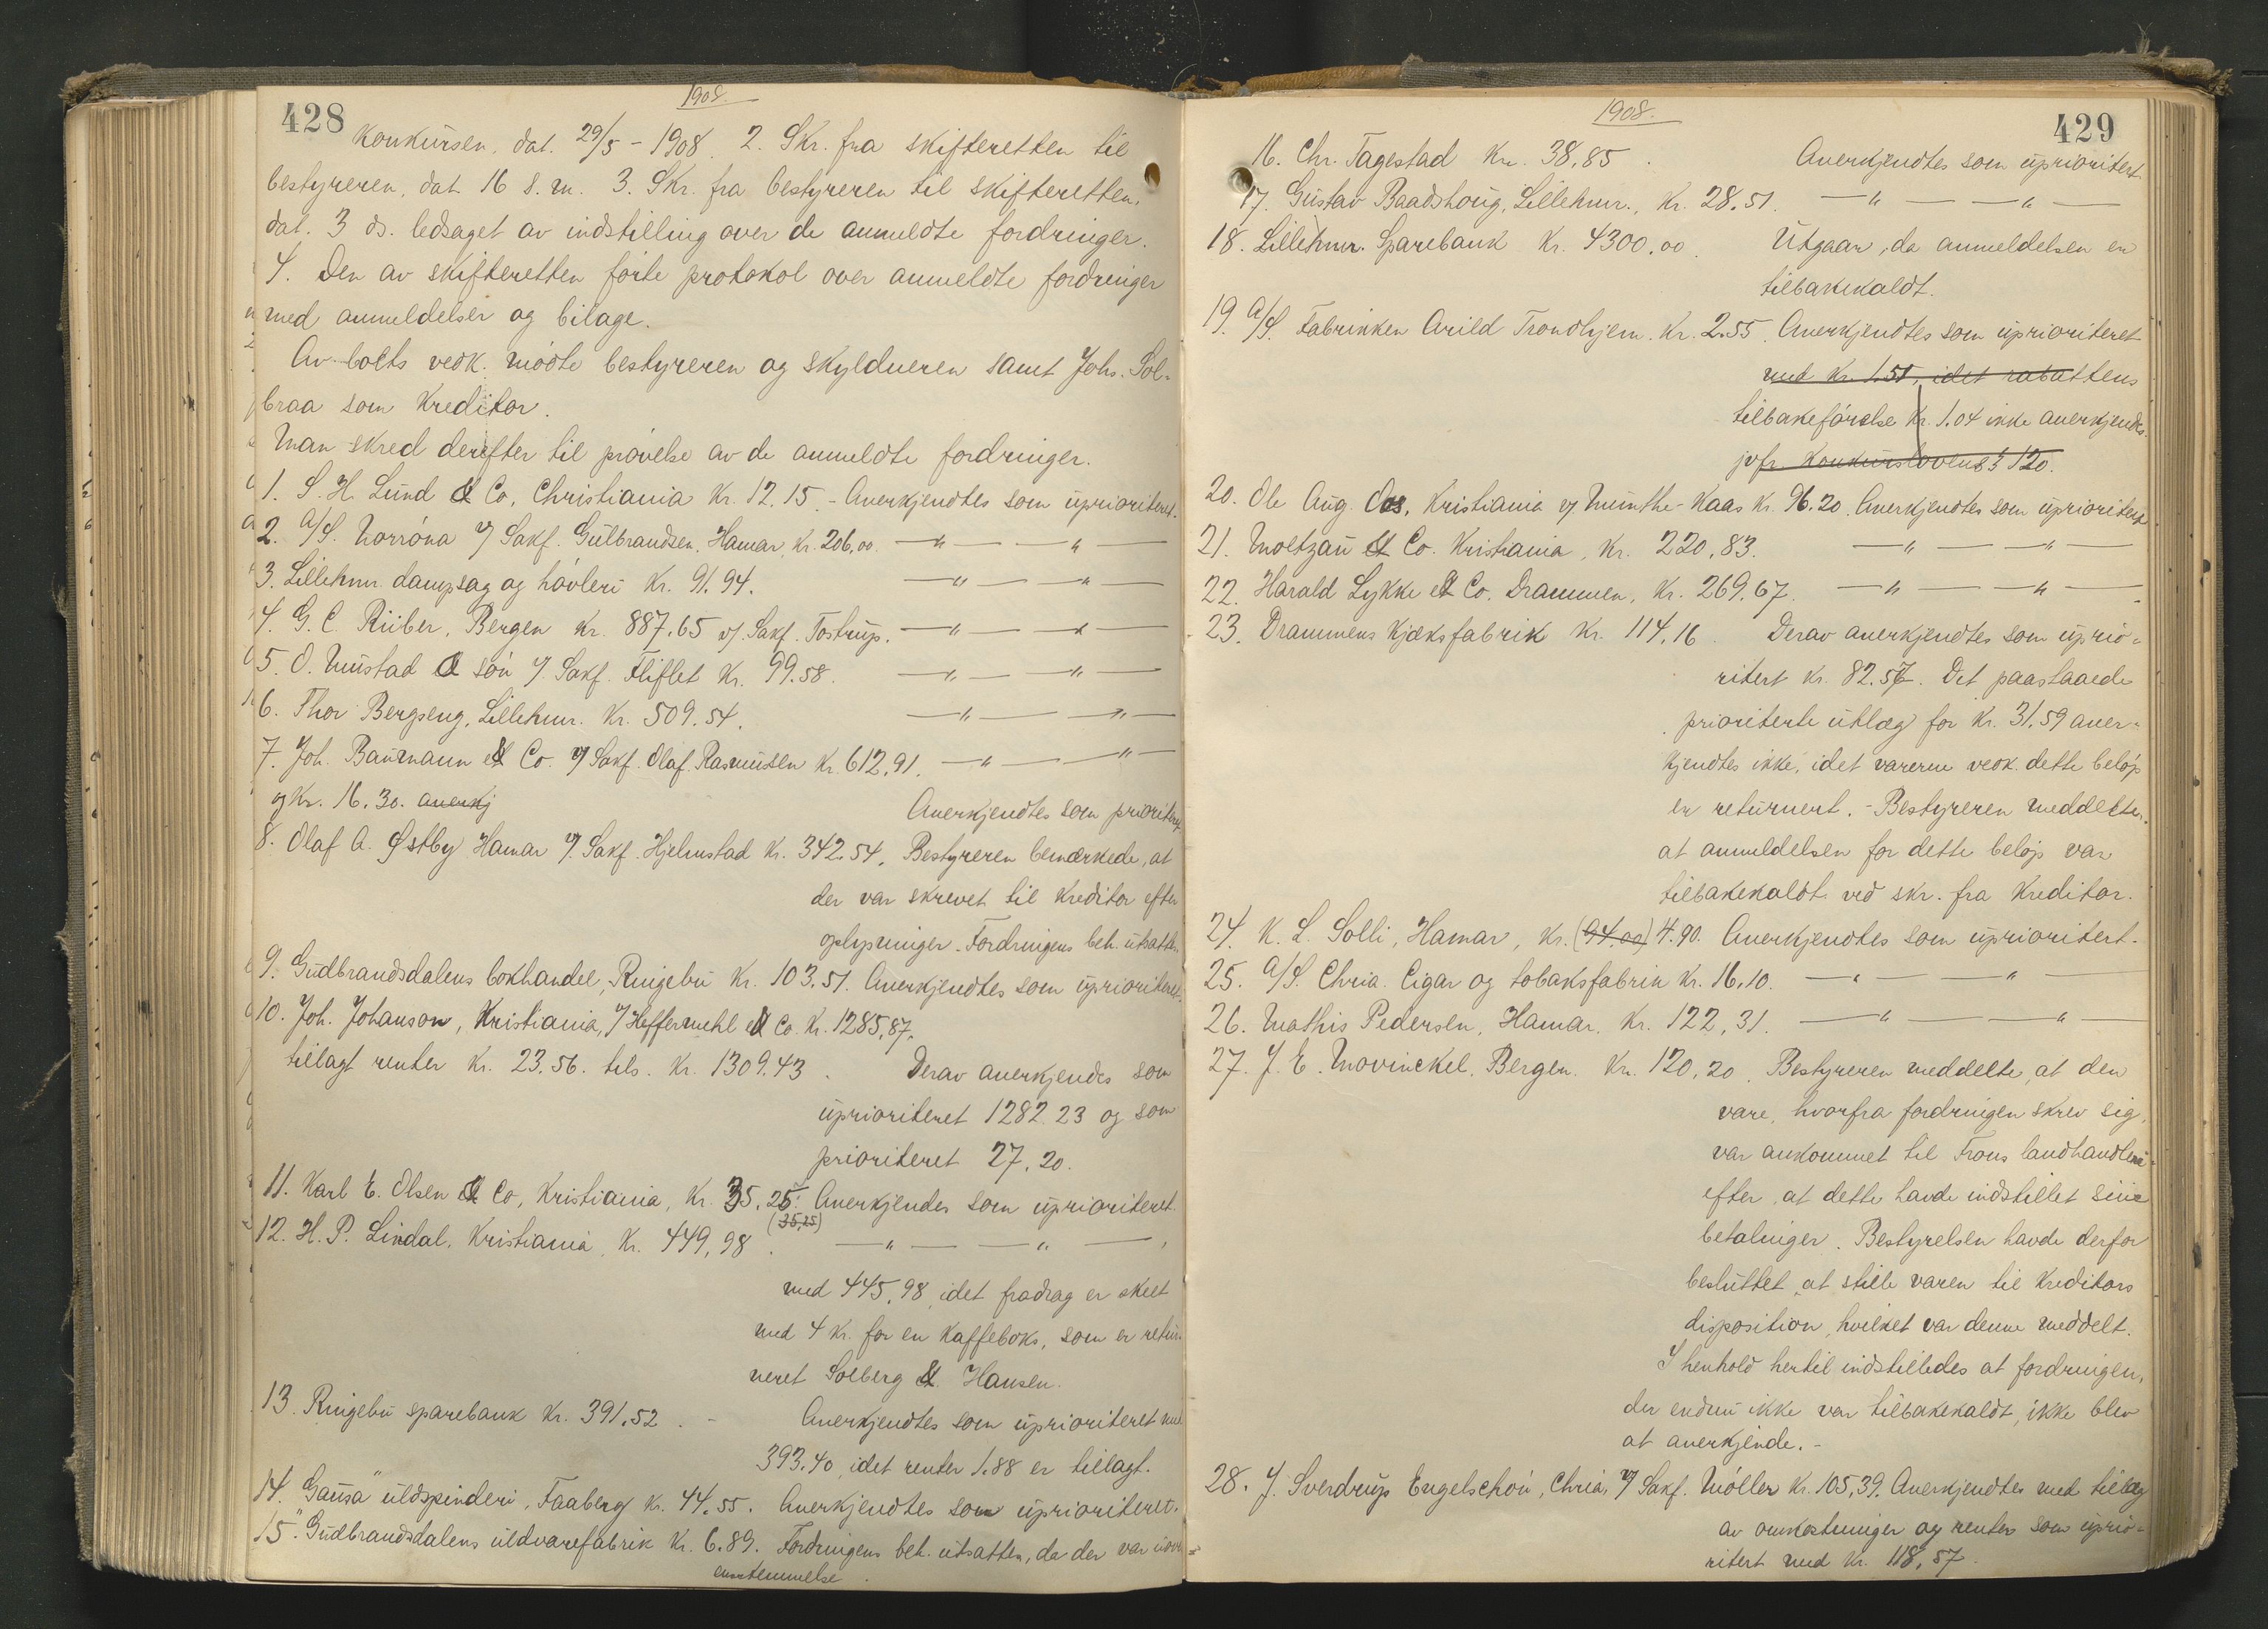 1908.
428
Konkursen, dat. 29/5 - 1908. 2. Skr. fra skifteretten til
bestyreren, dat. 16 s. m. 3. Skr. fra bestyreren til skifteretten,
dat. 3 ds. ledsaget av indstilling over de anmeldte fordringer.
4. Den av skifteretten førte protokol over anmeldte fordringer
med anmeldelser og bilage.
Av boets vedk. mødte bestyreren og skyldneren samt Johs. Sol-
braa som kreditor.
Man skred derefter til prøvelse av de anmeldte fordringer.
1. S. H. Lund & Co, Christiania Kr. 12.15. - Anerkjendtes som uprioriteret.
2. A/S. Norrøna v/ Sakf. Gulbrandsen, Hamar, Kr. 206,00. — " — — " —
3. Lillehmr. dampsag og høvleri Kr. 91.94. — " — — " —
4. G. C. Rieber, Bergen Kr. 887.65 v/. Sakf. Tostrup. — " — — " —
5. O. Mustad & søn v/ Sakf. Fliflet Kr. 99.58. — " — — " —
6. Thor Bergseng, Lillehmr. Kr. 509.54. — " — — " —
7. Joh. Baumann & Co. v/ Sakf. Olaf Rasmussen Kr. 612,91. — " — — " —
og Kr. 16.30. anerkj Anerkjendtes som prioriteret
8. Olaf A. Østby Hamar v/. Sakf. Hjelmstad Kr. 342.54. Bestyreren bemærkede, at
der var skrevet til kreditor efter
oplysninger. Fordringens beh. utsattes.
9. Gudbrandsdalens bokhandel, Ringebu Kr. 103,51. Anerkjendtes som uprioriteret.
10. Joh. Johanson, Kristiania, v/ Heffermehl & Co. Kr. 1285,87,
tillagt renter Kr. 23.56. tils. Kr. 1309.43. Derav anerkjendes som
uprioriteret 1282.23 og som
prioriteret 27.20.
11. Karl E. Olsen & Co, Kristiania, Kr. 35.25. Anerkjendes som uprioriteret.
(35,25)
12. H. P. Lindal, Kristiania, Kr. 449,98. — " — — " —
med 445,98, idet fradrag er skeet
med 4 Kr. for en kaffeboks, som er retur-
neret Solberg & Hansen.
13. Ringebu sparebank Kr. 391.52. - Anerkjendtes som uprioriteret med
393.40, idet renter 1.88 er tillagt.
14. "Gausa" uldspinderi, Faaberg Kr. 44.55. Anerkjendtes som uprioriteret.
15. Gudbrandsdalens uldvarefabrik Kr. 6.89. Fordringens beh. utsattes, da der var uover-
ensstemmelse.
1908.
429
16. Chr. Tagestad Kr. 38.85. Anerkjendtes som uprioritert.
17. Gustav Baadshoug, Lillehmr., Kr. 28.51. — " — — " —
18. Lillehmr. Sparebank Kr. 4300.00. Utgaar, da anmeldelsen er
tilbakekaldt.
19. A/S. Fabrikken Arild Trondhjem. Kr. 2.55. Anerkjendtes som uprioriteret
med Kr. 1.51, idet rabattens
tilbakeførelse Kr. 1.04 ikke anerkjendes.
jvfr. Konkurslovens § 120.
20. Ole Aug. Aas, Kristiania v/ Munthe-Kaas Kr. 96.20. Anerkjendtes som uprioritert
21. Moltzau & Co. Kristiania, Kr. 220.83. — " — — " —
22. Harald Lykke & Co. Drammen, Kr. 269.67. — " — — " —
23. Drammens Kjæksfabrik Kr. 114.16. Derav anerkjendtes som uprio-
ritert kr. 82.57. Det paastaaede
prioriterte utlæg for Kr. 31.59 aner-
kjendtes ikke, idet varerne vedk. dette beløp
er returnert. - Bestyreren meddelte,
at anmeldelsen for dette beløp var
tilbakekaldt ved skr. fra kreditor.
24. K. L. Solli, Hamar, Kr. (94.00) 4.90. Anerkjendtes som uprioritert.
25. A/S. Chria. Cigar og tobaksfabrik Kr. 16.10. — " — — " —
26. Mathis Pedersen, Hamar. Kr. 122,31. — " — — " —
27. J. E. Mowinckel, Bergen. Kr. 120,20. Bestyreren meddelte, at den
vare, hvorfra fordringen skrev sig,
var ankommet til Frons landhandleri
efter, at dette havde indstillet sine
betalinger. Bestyrelsen havde derfor
besluttet at stille varen til kreditors
disposition, hvilket var denne meddelt.
I henhold hertil indstilledes at fordringen,
der endnu ikke var tilbakekaldt, ikke blev
at anerkjende. -
28. J. Sverdrup Engelschøn, Chria, v/ Sakf. Møller Kr. 105,39. Anerkjendtes med tillæg
av omkostninger og renter som uprio-
ritert med Kr. 118,57.